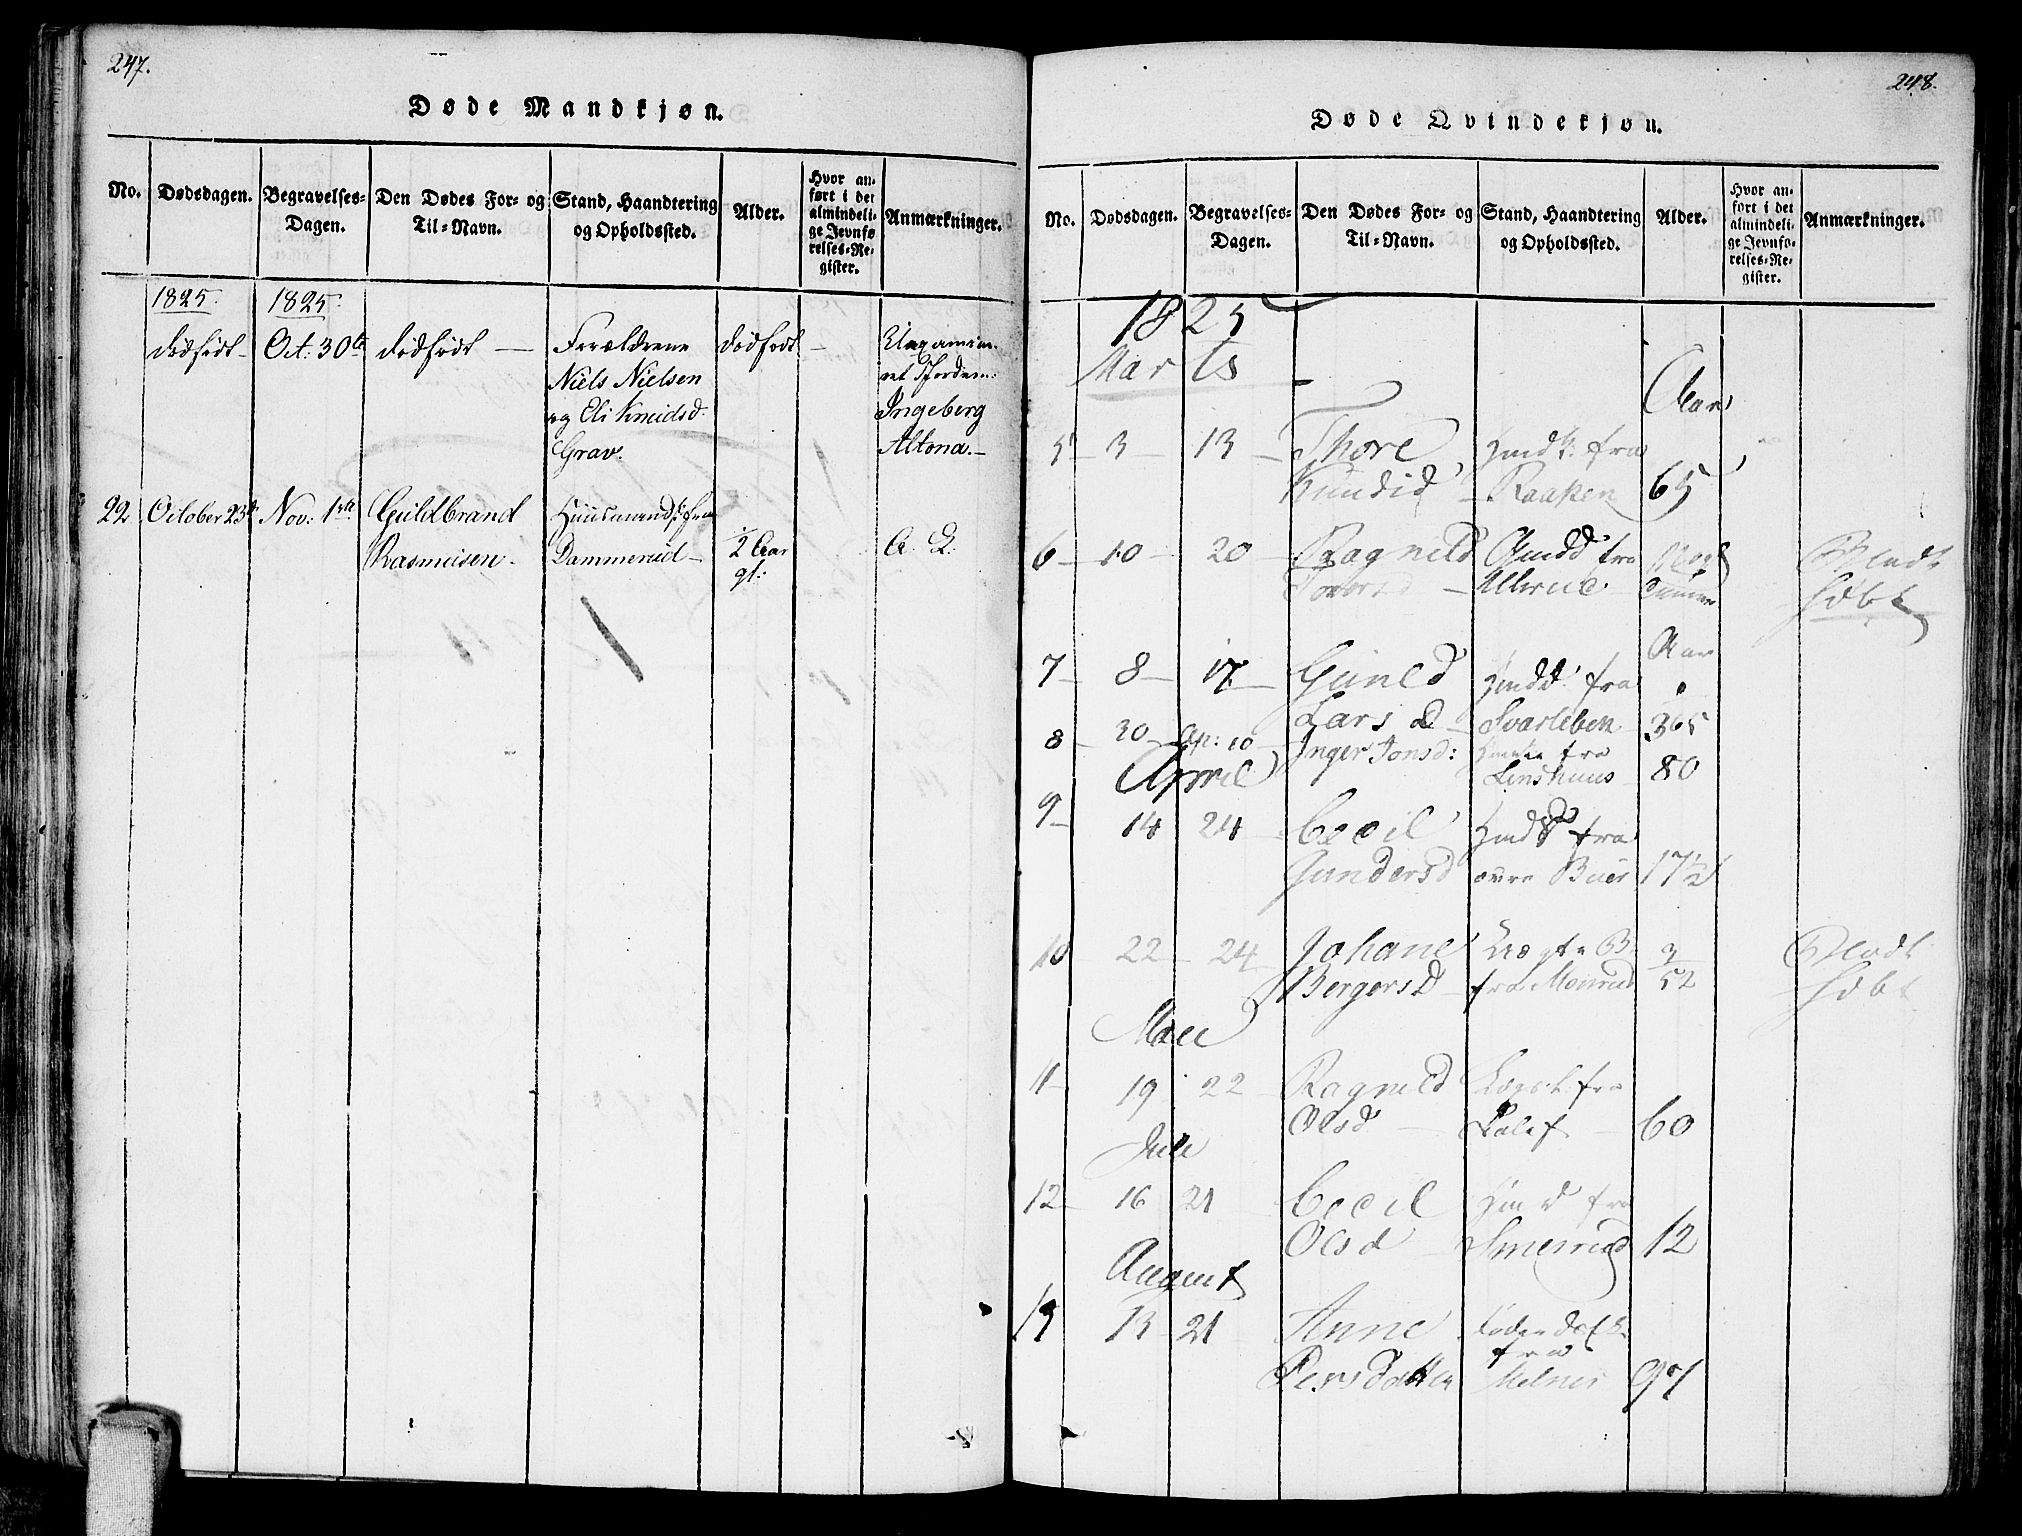 247.
Døde Mandkjøn.
No. Dødsdagen. Begravelses-Dagen. Den Dødes For- og Til-Navn. Stand, Haandtering og Opholdssted. Alder. Hvor anført i det almindelige Jevnførelses-Register. Anmærkninger.
1825. 1825.
dødfødt Oct: 30te dødfødt Forældrene dødfødt
Niels Nielsen
og Eli Knudsd. Ingeberg
Grav. Altona.
22 October 23de Nov: 1ste Guldbrand Huusmands: fra
Rasmusen Dammerud ½ Aar A. L.
gl:
248.
Døde Qvindekjøn.
No. Dødsdagen. Begravelses-Dagen. Den Dødes For- og Til-Navn. Stand, Haandtering og Opholdssted. Alder. Hvor anført i det almindelige Jevnførelses-Register. Anmærkninger.
1825
Marts
Aar
5 3 13 Thore Hmdk: fra
Kundid Raaken 65
6 10 20 Ragnild Gmdd fra
Ullerud
Aar
7 8 17 Guneld Hmdd fra
Lars D Svarteben 365
8 30 Ap: 10 Inger Jonsd: fra
April Linshuus 80
9 14 24 Cecil Hmdd fra
Gundersd øvre Buer 17½
10 22 24 Johane Lægte B 3
Bergersd fra Monrud 52
Maii
11 19 22 Ragnild Lægsk fra
Olsd 60
Julii
12 16 21 Cecil Hmd fra
Olsd Smerrud 12
August
13 13 21 Anne Føderaadsk:
fra
Persdatter Melnes 97